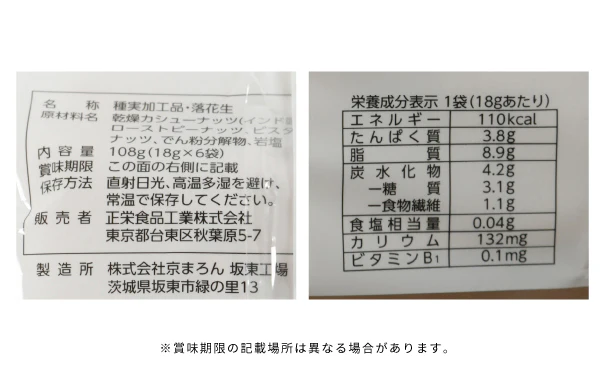 名称 種実加工品・落花生
原材料名 乾燥カシューナッツ(インド
ローストピーナッツ、ピスタ
ナッツ、でん粉分解物、岩塩
内容量 108g(18g×6袋)
賞味期限 この面の右側に記載
保存方法 直射日光、高温多湿を避け、
常温で保存してください。
販売者 正栄食品工業株式会社
東京都台東区秋葉原5-7
製造所 株式会社京まろん 坂東工場
茨城県坂東市緑の里13
栄養成分表示 1袋(18gあたり)
エネルギー 110kcal
たんぱく質 3.8g
脂質 8.9g
炭水化物 4.2g
ー糖質 3.1g
ー食物繊維 1.1g
食塩相当量 0.04g
カリウム 132mg
ビタミンB1 0.1mg
※賞味期限の記載場所は異なる場合があります。